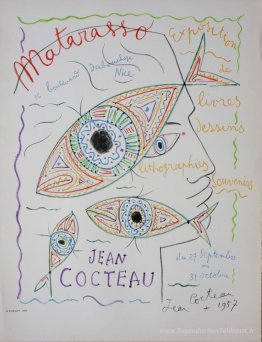 Matarasso
36 boulevard Dubouchage
Nice
Exposition
de
livres
dessins
lithographies
Souvenirs
JEAN
COCTEAU
du 27 Septembre
au
31 octobre
Jean Cocteau
1957